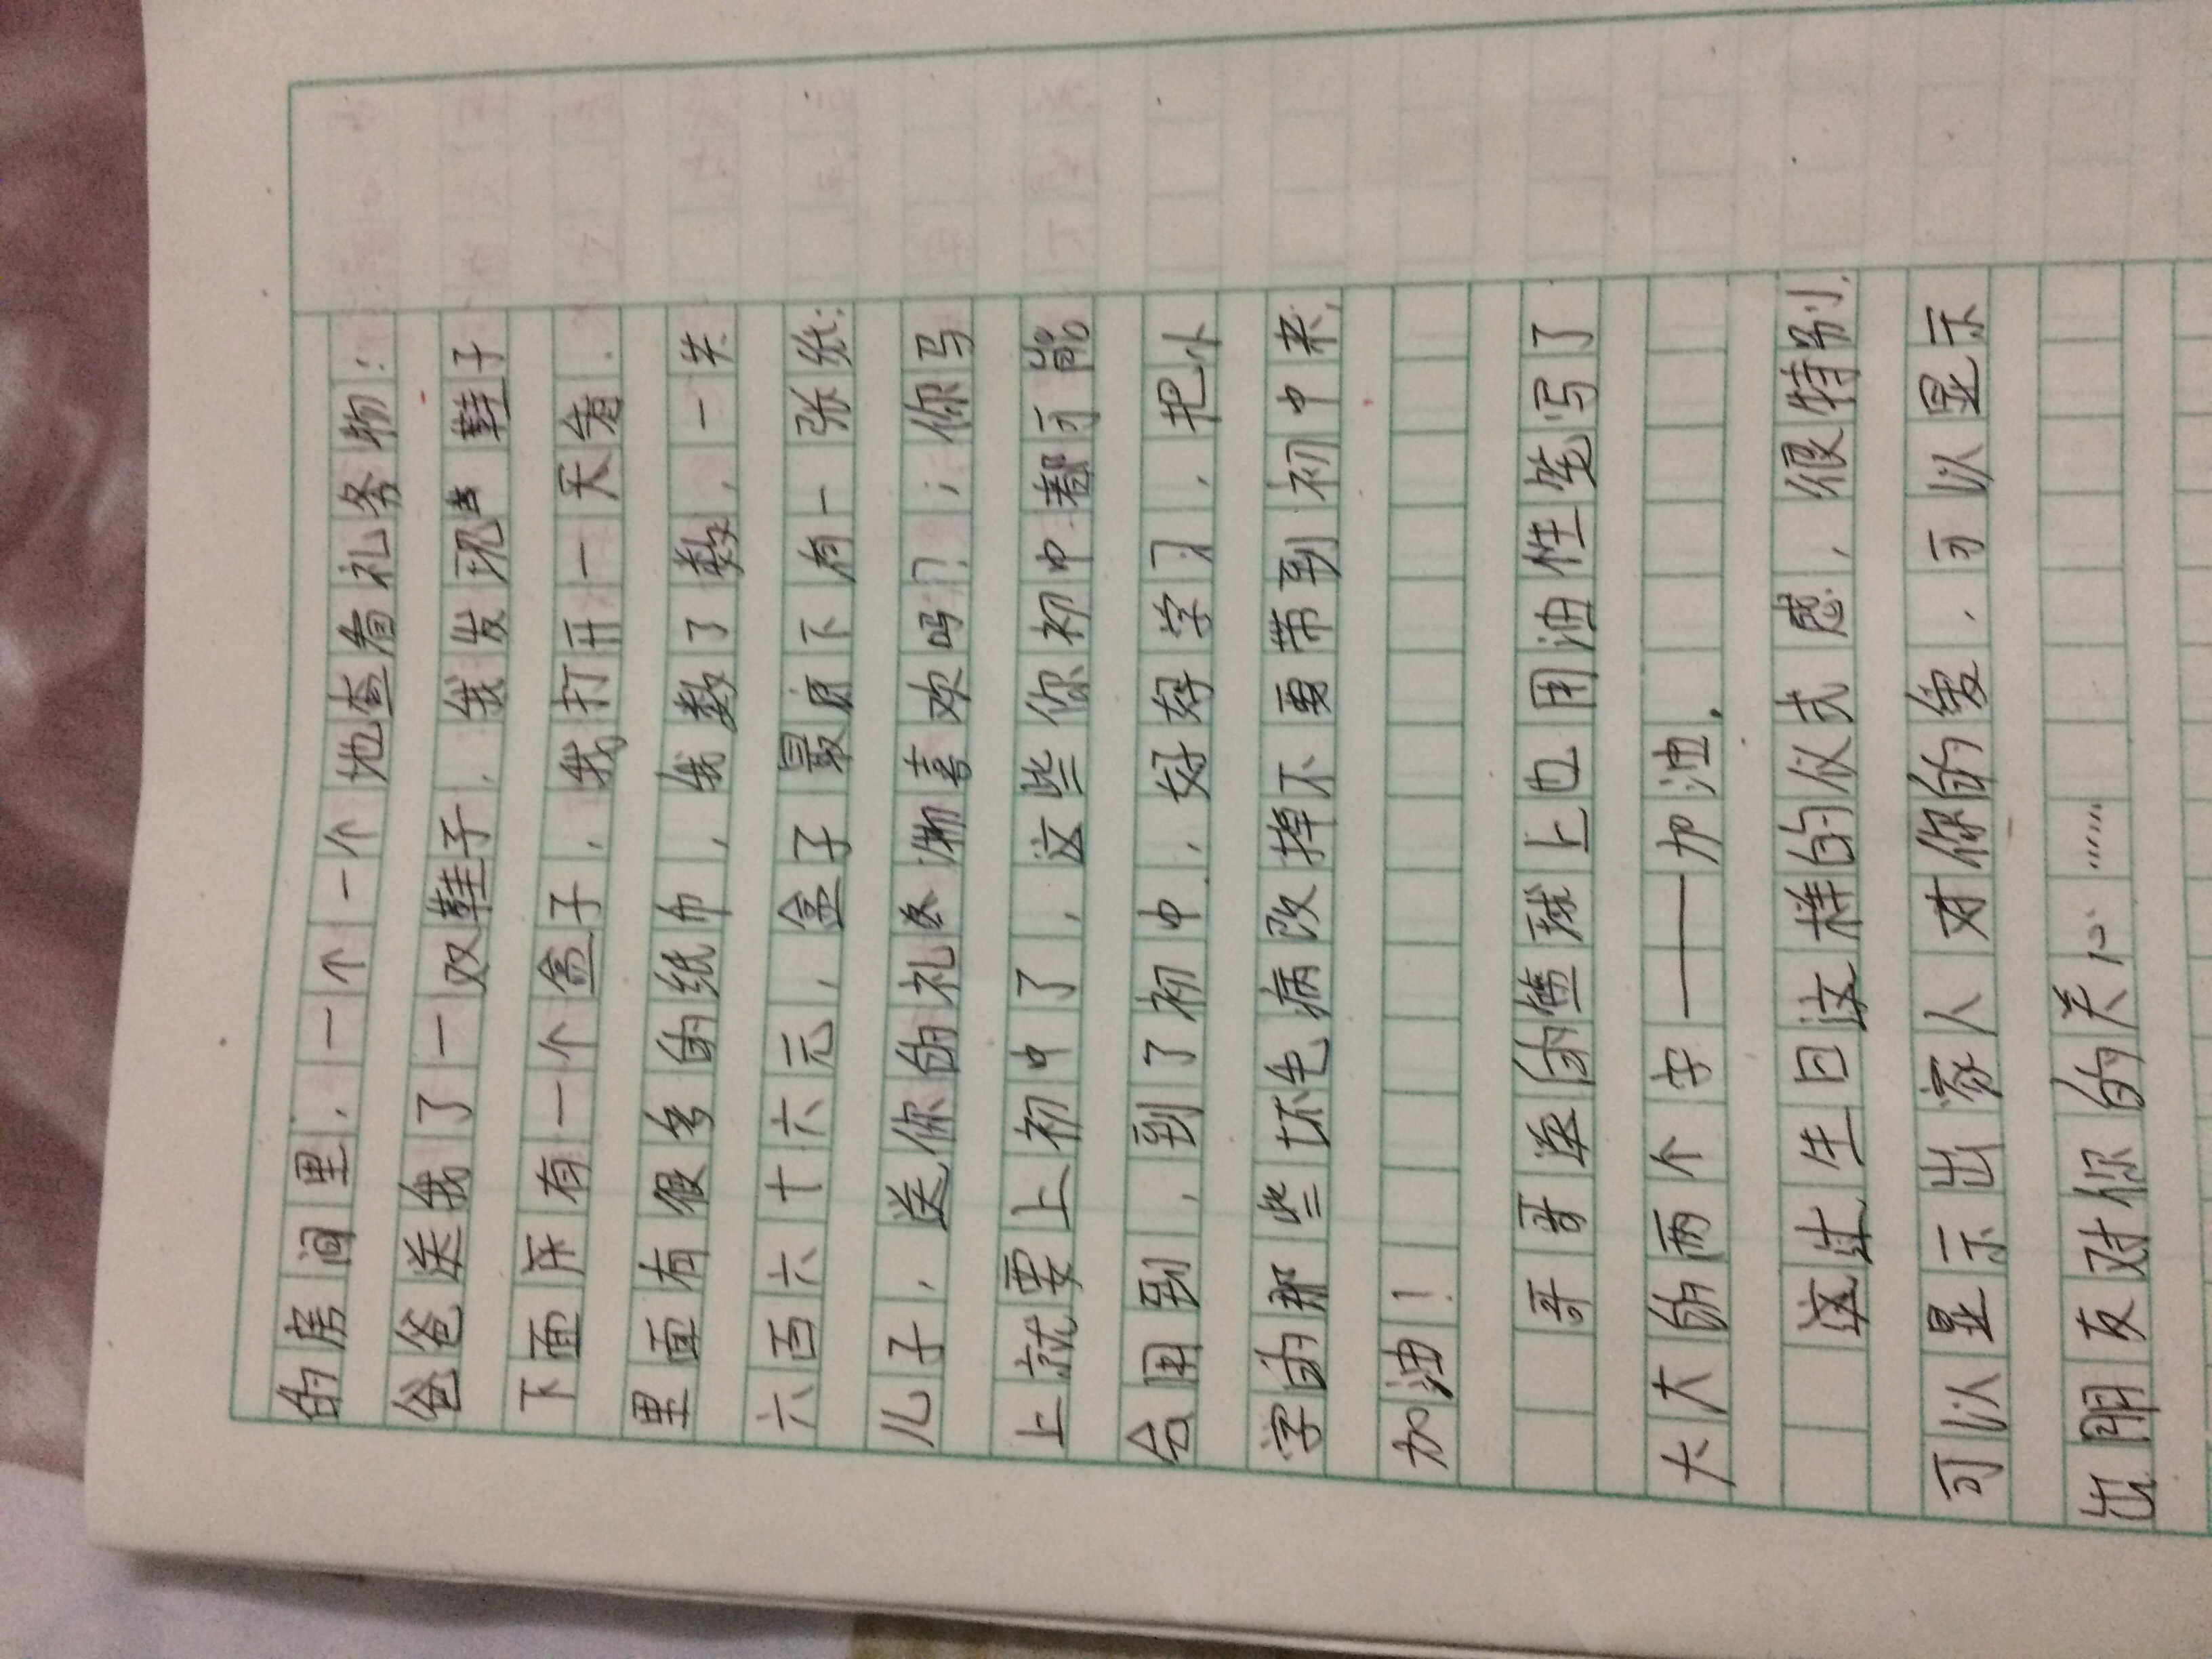 的房间里，一个一个地查看礼物：
爸爸送我了一双鞋子，我发现鞋子
下面还有一个盒子，我打开一看，
里面有很多的纸巾，我数了数，一共
六百六十六元，盒子最底下有一张纸：
儿子，送你的礼物喜欢吗？；你马
上就要上初中了，这些你初中都可能
会用到，到了初中，好好学习，把小
学的那些坏毛病改掉不要带到初中来，
加油！
哥哥送的篮球上也用油性笔写了
大大的两个字——加油。
这过生日这样的仪式感，很特别，
可以显示出家人对你的爱，可以显示
出朋友对你的关心……